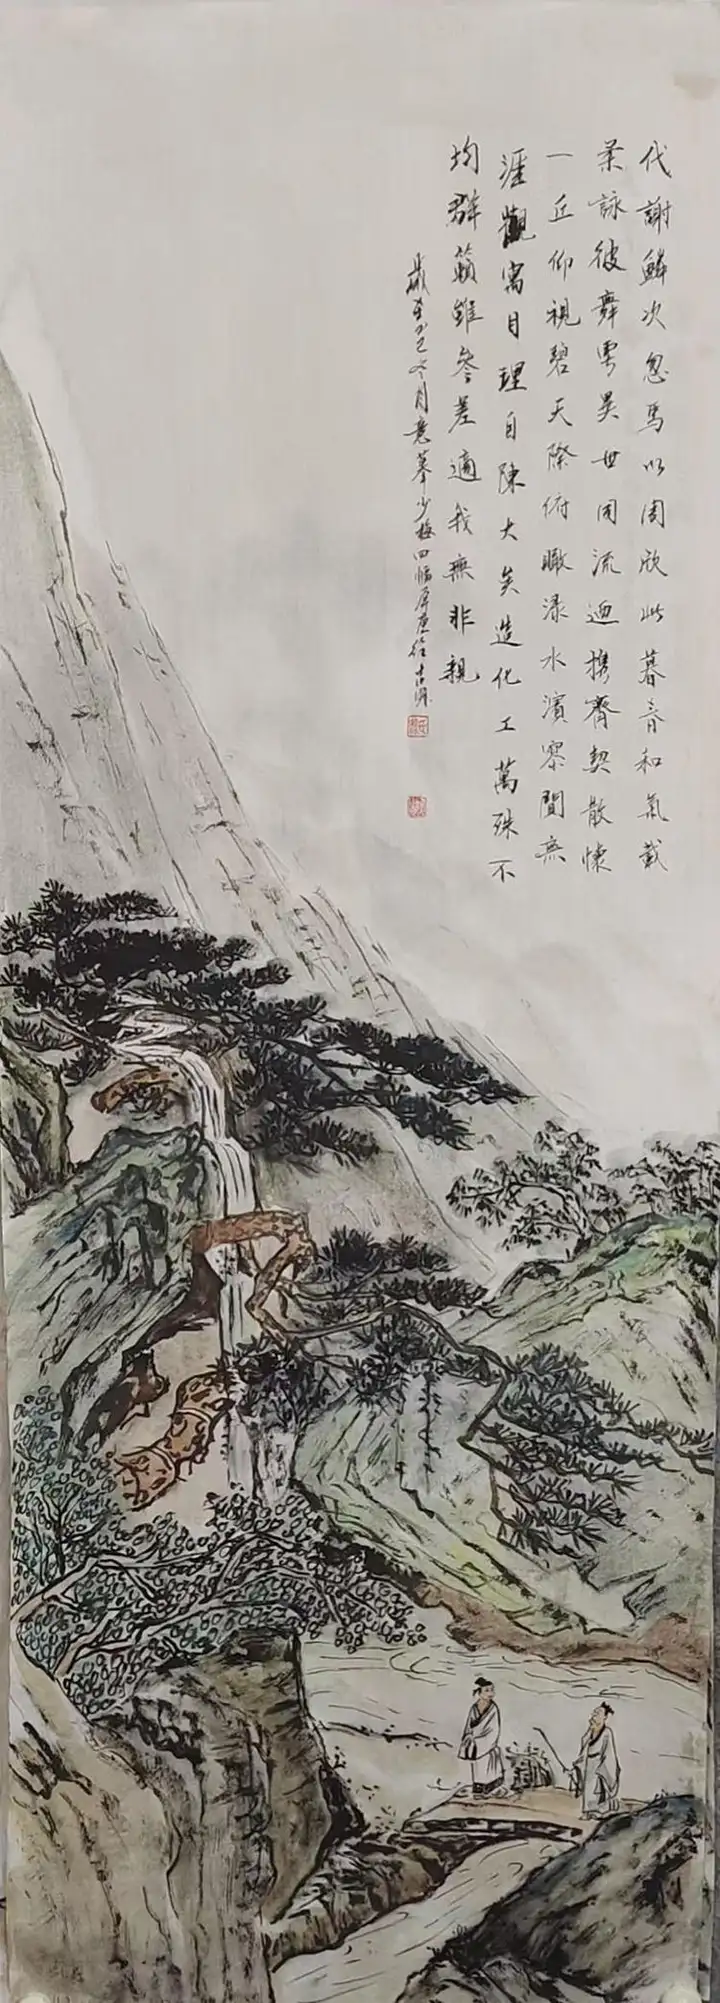 代謝鱗次忽焉以周欣此暮春和氣載
柔詠彼舞雩異世同流迺携齊契散懷
一丘仰視碧天際俯瞰淥水濱寥間無
涯觀寓目理自陳大矣造化工萬殊不
均群籟雖參差適我無非親
歲在乙巳冬月意摹少梅四幅屏